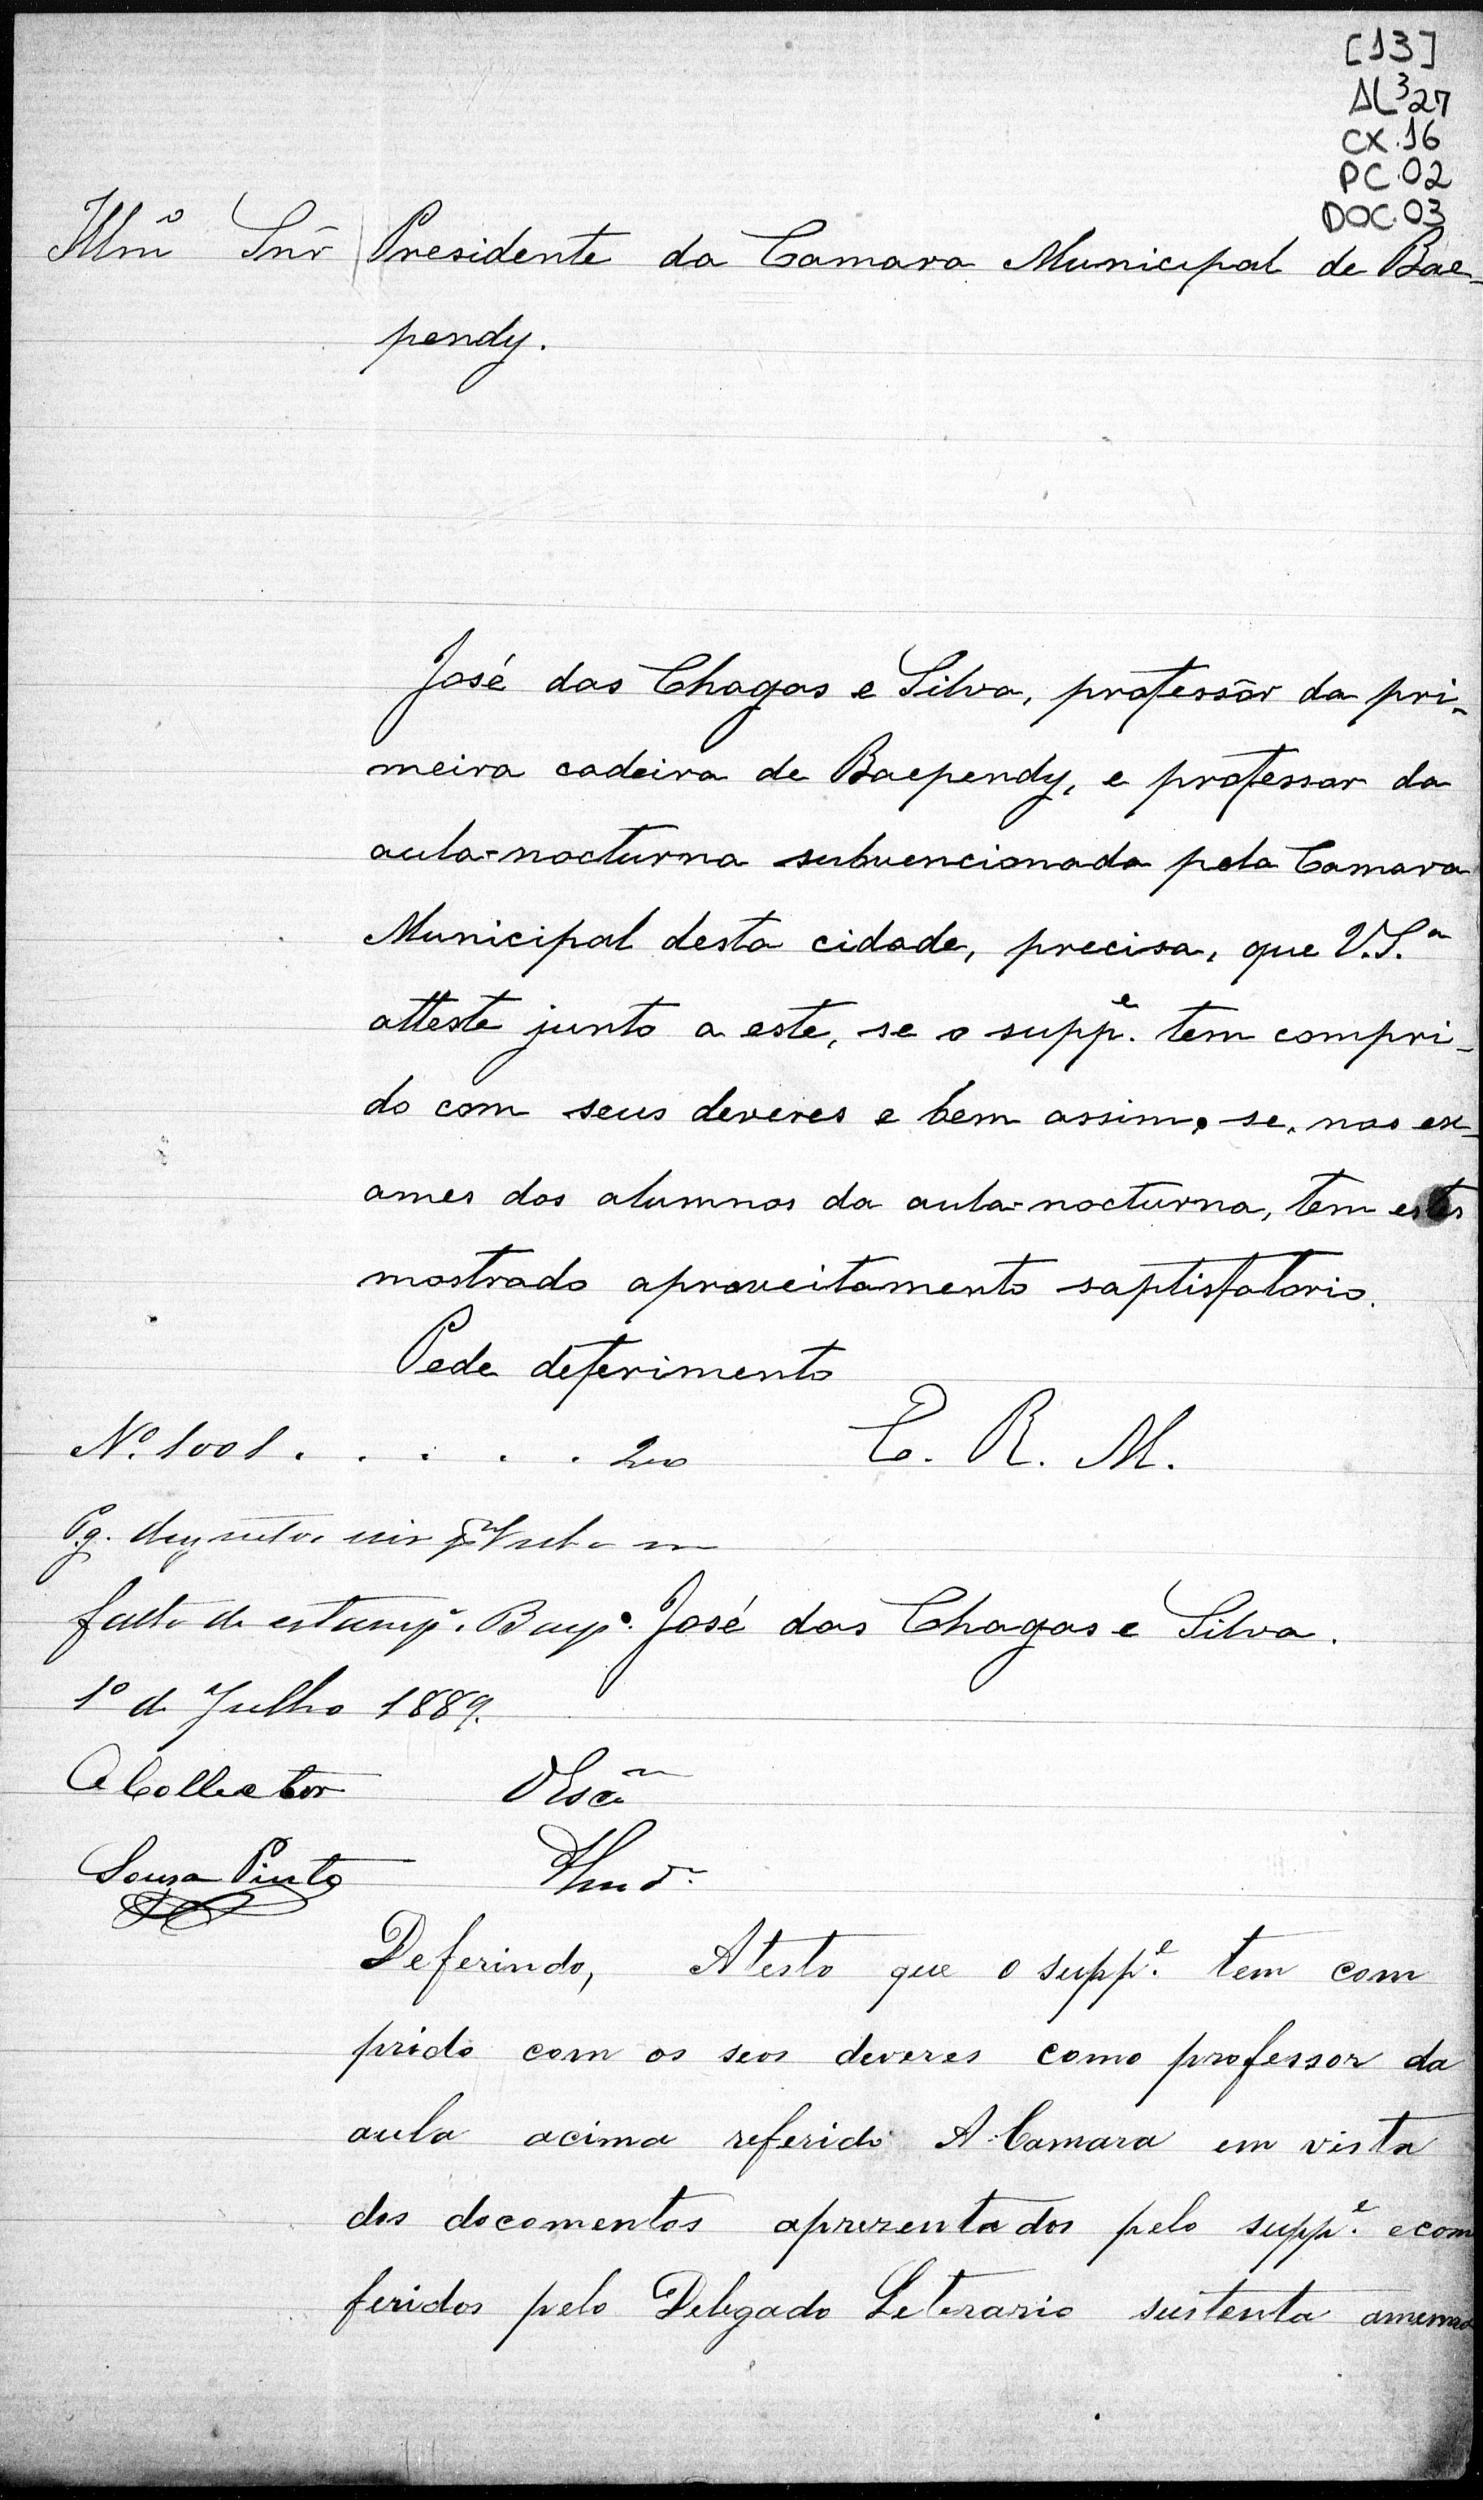 [13]
AL³27
CX.16
PC.02
DOC.03
Illmº Snr Presidente da Camara Municipal de Bae-
pendy.
José das Chagas e Silva, professôr da pri-
meira cadeira de Baependy, e professor da
aula-nocturna subvencionada pela Camara
Municipal desta cidade, precisa, que V.S.ª
atteste junto a este, se o supp.e tem compri-
do com seus deveres e bem assim, se, nos ex-
ames dos alumnos da aula-nocturna, tem estes
mostrado aproveitamento saptisfatorio.
Pede deferimento
Nº 1001 . . . . . 200 E. R. M.
Pg. duzentos reis
falta de estampª. Baepº. José das Chagas e Silva.
1º de Julho 1889.
O Collector O Escm
Sousa Pinto
Deferindo, Atesto que o supp.e tem com
prido com os seos deveres como professor da
aula acima referido A Camara em vista
dos docomentos aprezentados pelo supp.e e com
feridos pelo Delegado Leterario sustenta amesma